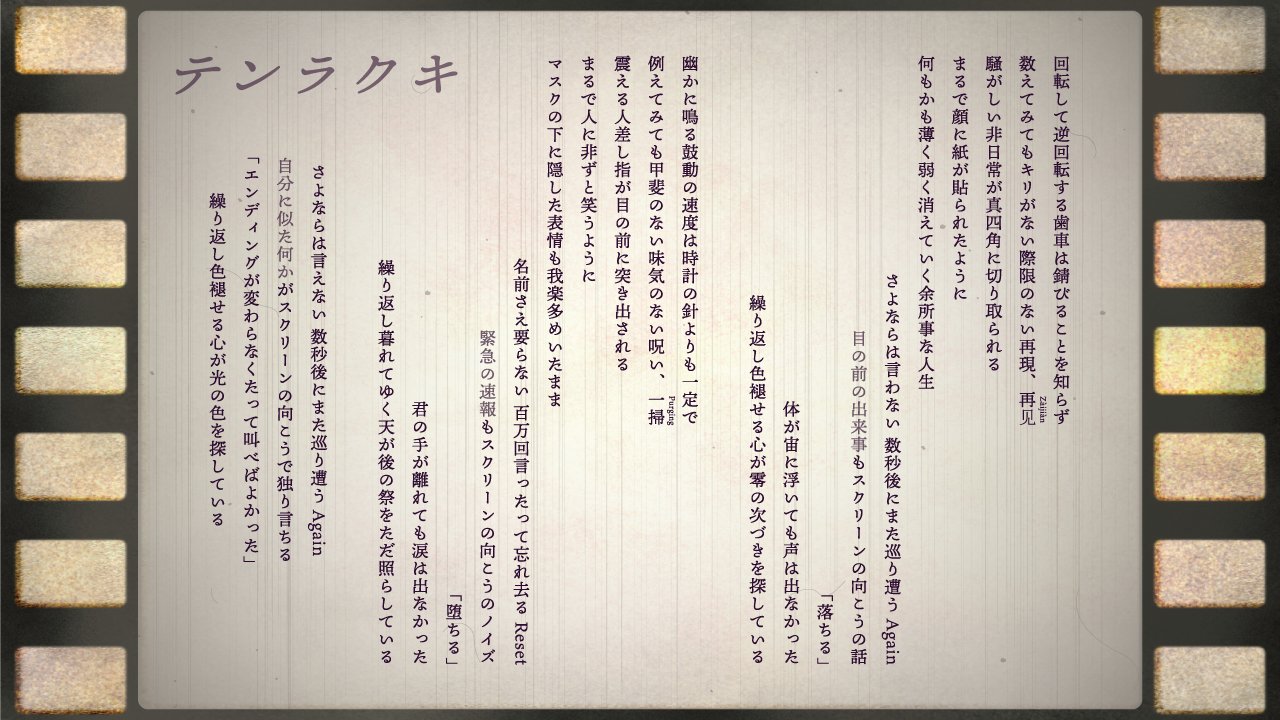 テンラクキ
回転して逆回転する歯車は錆びることを知らず
数えてみてもキリがない際限のない再現、再见
Zàijiàn
騒がしい非日常が真四角に切り取られる
まるで顔に紙が貼られたように
何もかも薄く弱く消えていく余所事な人生
さよならは言わない 数秒後にまた巡り遭う Again
目の前の出来事もスクリーンの向こうの話
「落ちる」
体が宙に浮いても声は出なかった
繰り返し色褪せる心が零の次づきを探している
幽かに鳴る鼓動の速度は時計の針よりも一定で
例えてみても甲斐のない味気のない呪い、一掃
Purging
震える人差し指が目の前に突き出される
まるで人に非ずと笑うように
マスクの下に隠した表情も我楽多めいたまま
名前さえ要らない 百万回言ったって忘れ去る Reset
緊急の速報もスクリーンの向こうのノイズ
「堕ちる」
君の手が離れても涙は出なかった
繰り返し暮れてゆく天が後の祭をただ照らしている
さよならは言えない 数秒後にまた巡り遭う Again
自分に似た何かがスクリーンの向こうで独り言ちる
「エンディングが変わらなくたって叫べばよかった」
繰り返し色褪せる心が光の色を探している